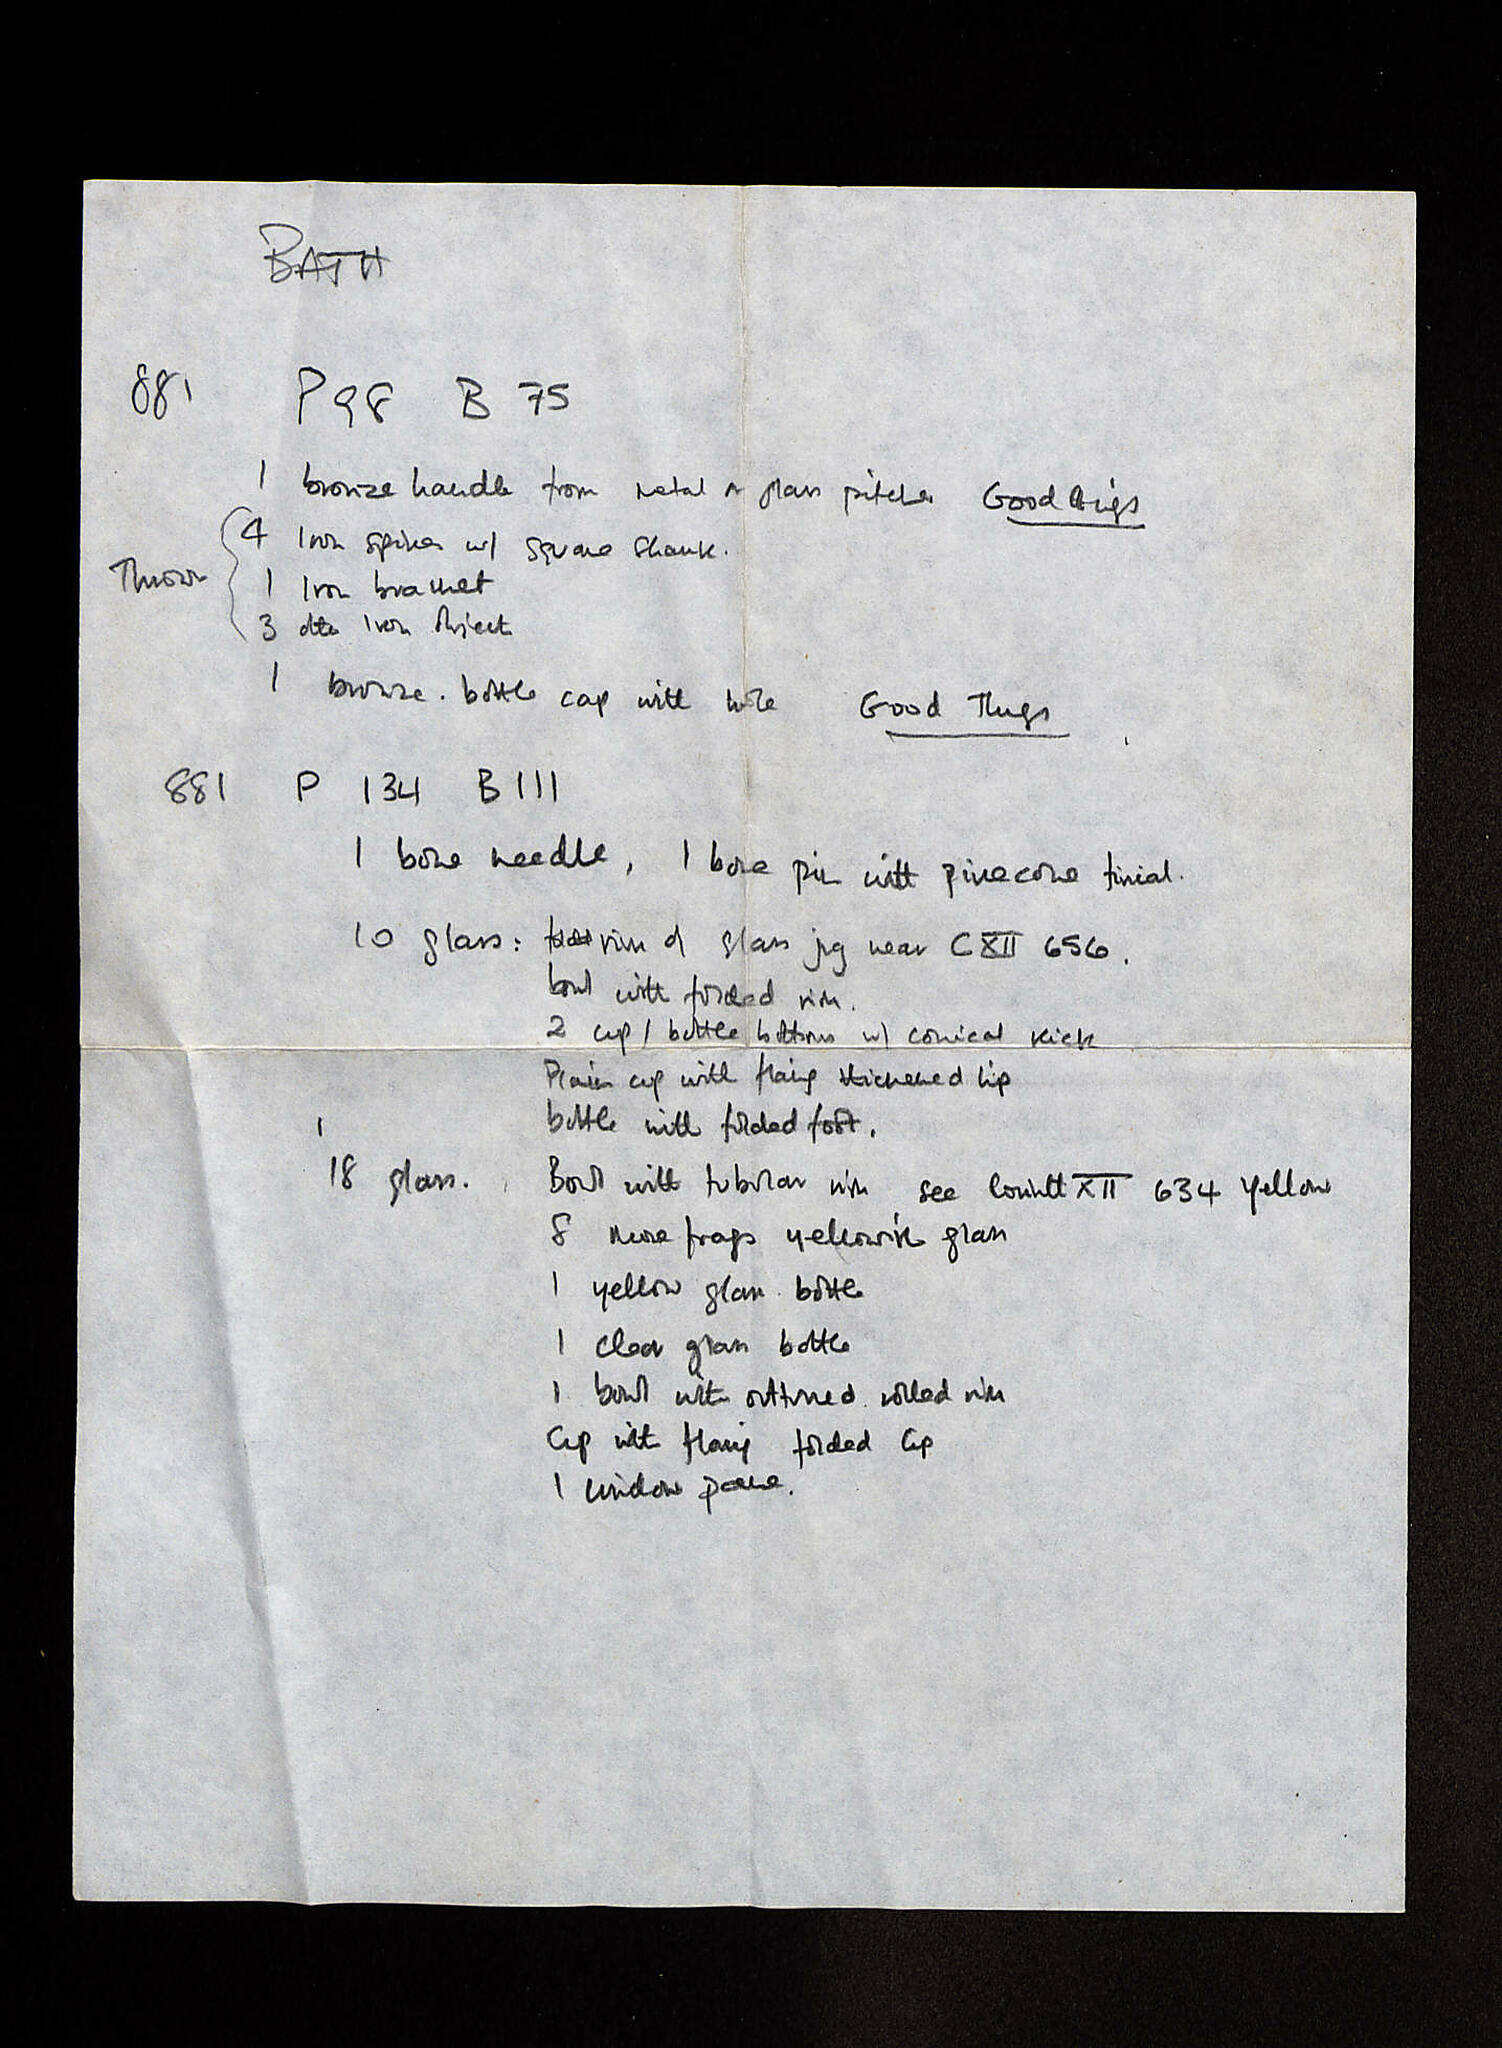 BATH
881 P 98 B 75
1 bronze handle from metal or glass pitcher Good things
Thrown
4 Iron spikes w/ square shank.
1 Iron bracket
3 other Iron objects
1 bronze. bottle cap with hole Good Things
881 P 134 B 111
1 bone needle, 1 bone pin with pinecone finial.
10 glass: rim of glass jug near C XII 656.
bowl with folded rim.
2 cup / bottle bottoms w/ conical kick
Plain cup with flaring thickened lip
bottle with folded foot.
18 glass. Bowl with tubular rim see Corinth XII 634 Yellow
8 more frags yellowish glass
1 yellow glass bottle
1 clear glass bottle
1 bowl with outturned rolled rim
Cup with flaring folded lip
1 window pane.